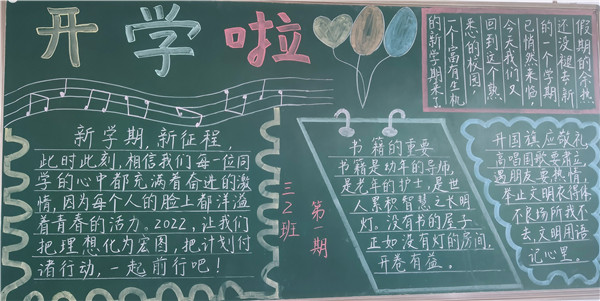 开学啦
假期的余热
还没褪去新
的一个学期
已悄然来临，
今天我们又
回到这个熟
悉的校园，
一个富有生机
的新学期来了
新学期，新征程，
此时此刻，相信我们每一位同
学的心中都充满着奋进的激
情，因为每个人的脸上都洋溢
着青春的活力。2022，让我们
把理想化为宏图，把计划付
诸行动，一起前行吧！
三2班
第一期
书籍的重要
书籍是幼年的导师，
是老年的护士，是世
人累积智慧之长明
灯。没有书的屋子
正如没有灯的房间，
开卷有益。
升国旗应敬礼
高唱国歌要肃立
遇朋友要热情
举止文明衣得体
不良场所我不
去，文明用语
记心里。